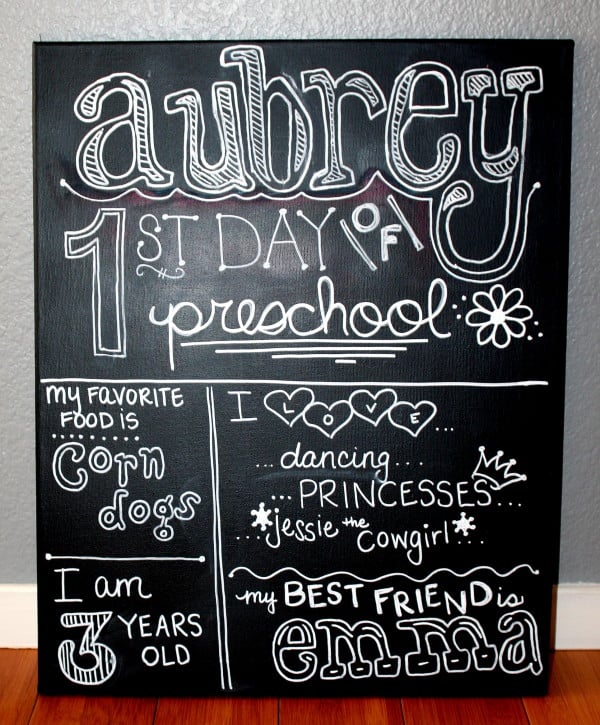 aubrey
1ST DAY OF
preschool
my FAVORITE
FOOD is
Corn
dogs
I am
3 YEARS
OLD
I LOVE...
...dancing...
...PRINCESSES...
...jessie the Cowgirl...
my BEST FRIEND is
emma